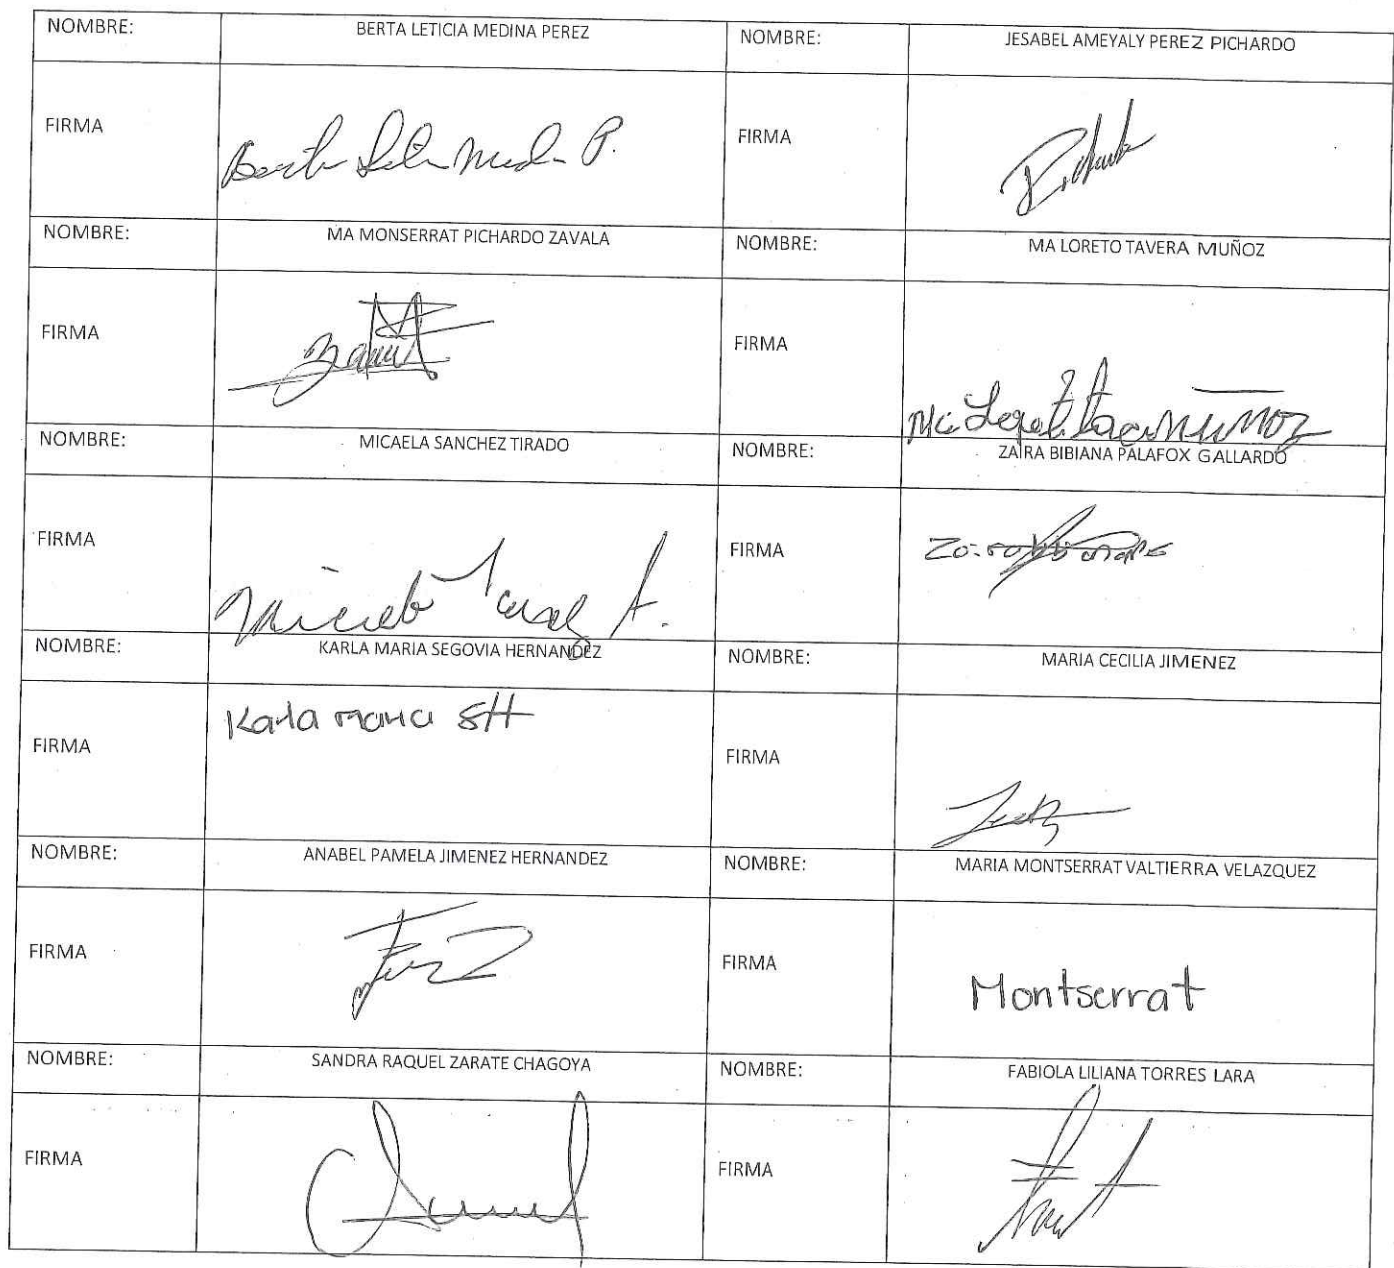 NOMBRE: BERTA LETICIA MEDINA PEREZ NOMBRE: JESABEL AMEYALY PEREZ PICHARDO
FIRMA Berta P. FIRMA
NOMBRE: MA MONSERRAT PICHARDO ZAVALA NOMBRE: MA LORETO TAVERA MUÑOZ
FIRMA FIRMA Ma MUÑOZ
NOMBRE: MICAELA SANCHEZ TIRADO NOMBRE: ZAIRA BIBIANA PALAFOX GALLARDO
FIRMA FIRMA
NOMBRE: KARLA MARIA SEGOVIA HERNANDEZ NOMBRE: MARIA CECILIA JIMENEZ
FIRMA Karla Maria SH FIRMA
NOMBRE: ANABEL PAMELA JIMENEZ HERNANDEZ NOMBRE: MARIA MONTSERRAT VALTIERRA VELAZQUEZ
FIRMA FIRMA Montserrat
NOMBRE: SANDRA RAQUEL ZARATE CHAGOYA NOMBRE: FABIOLA LILIANA TORRES LARA
FIRMA FIRMA